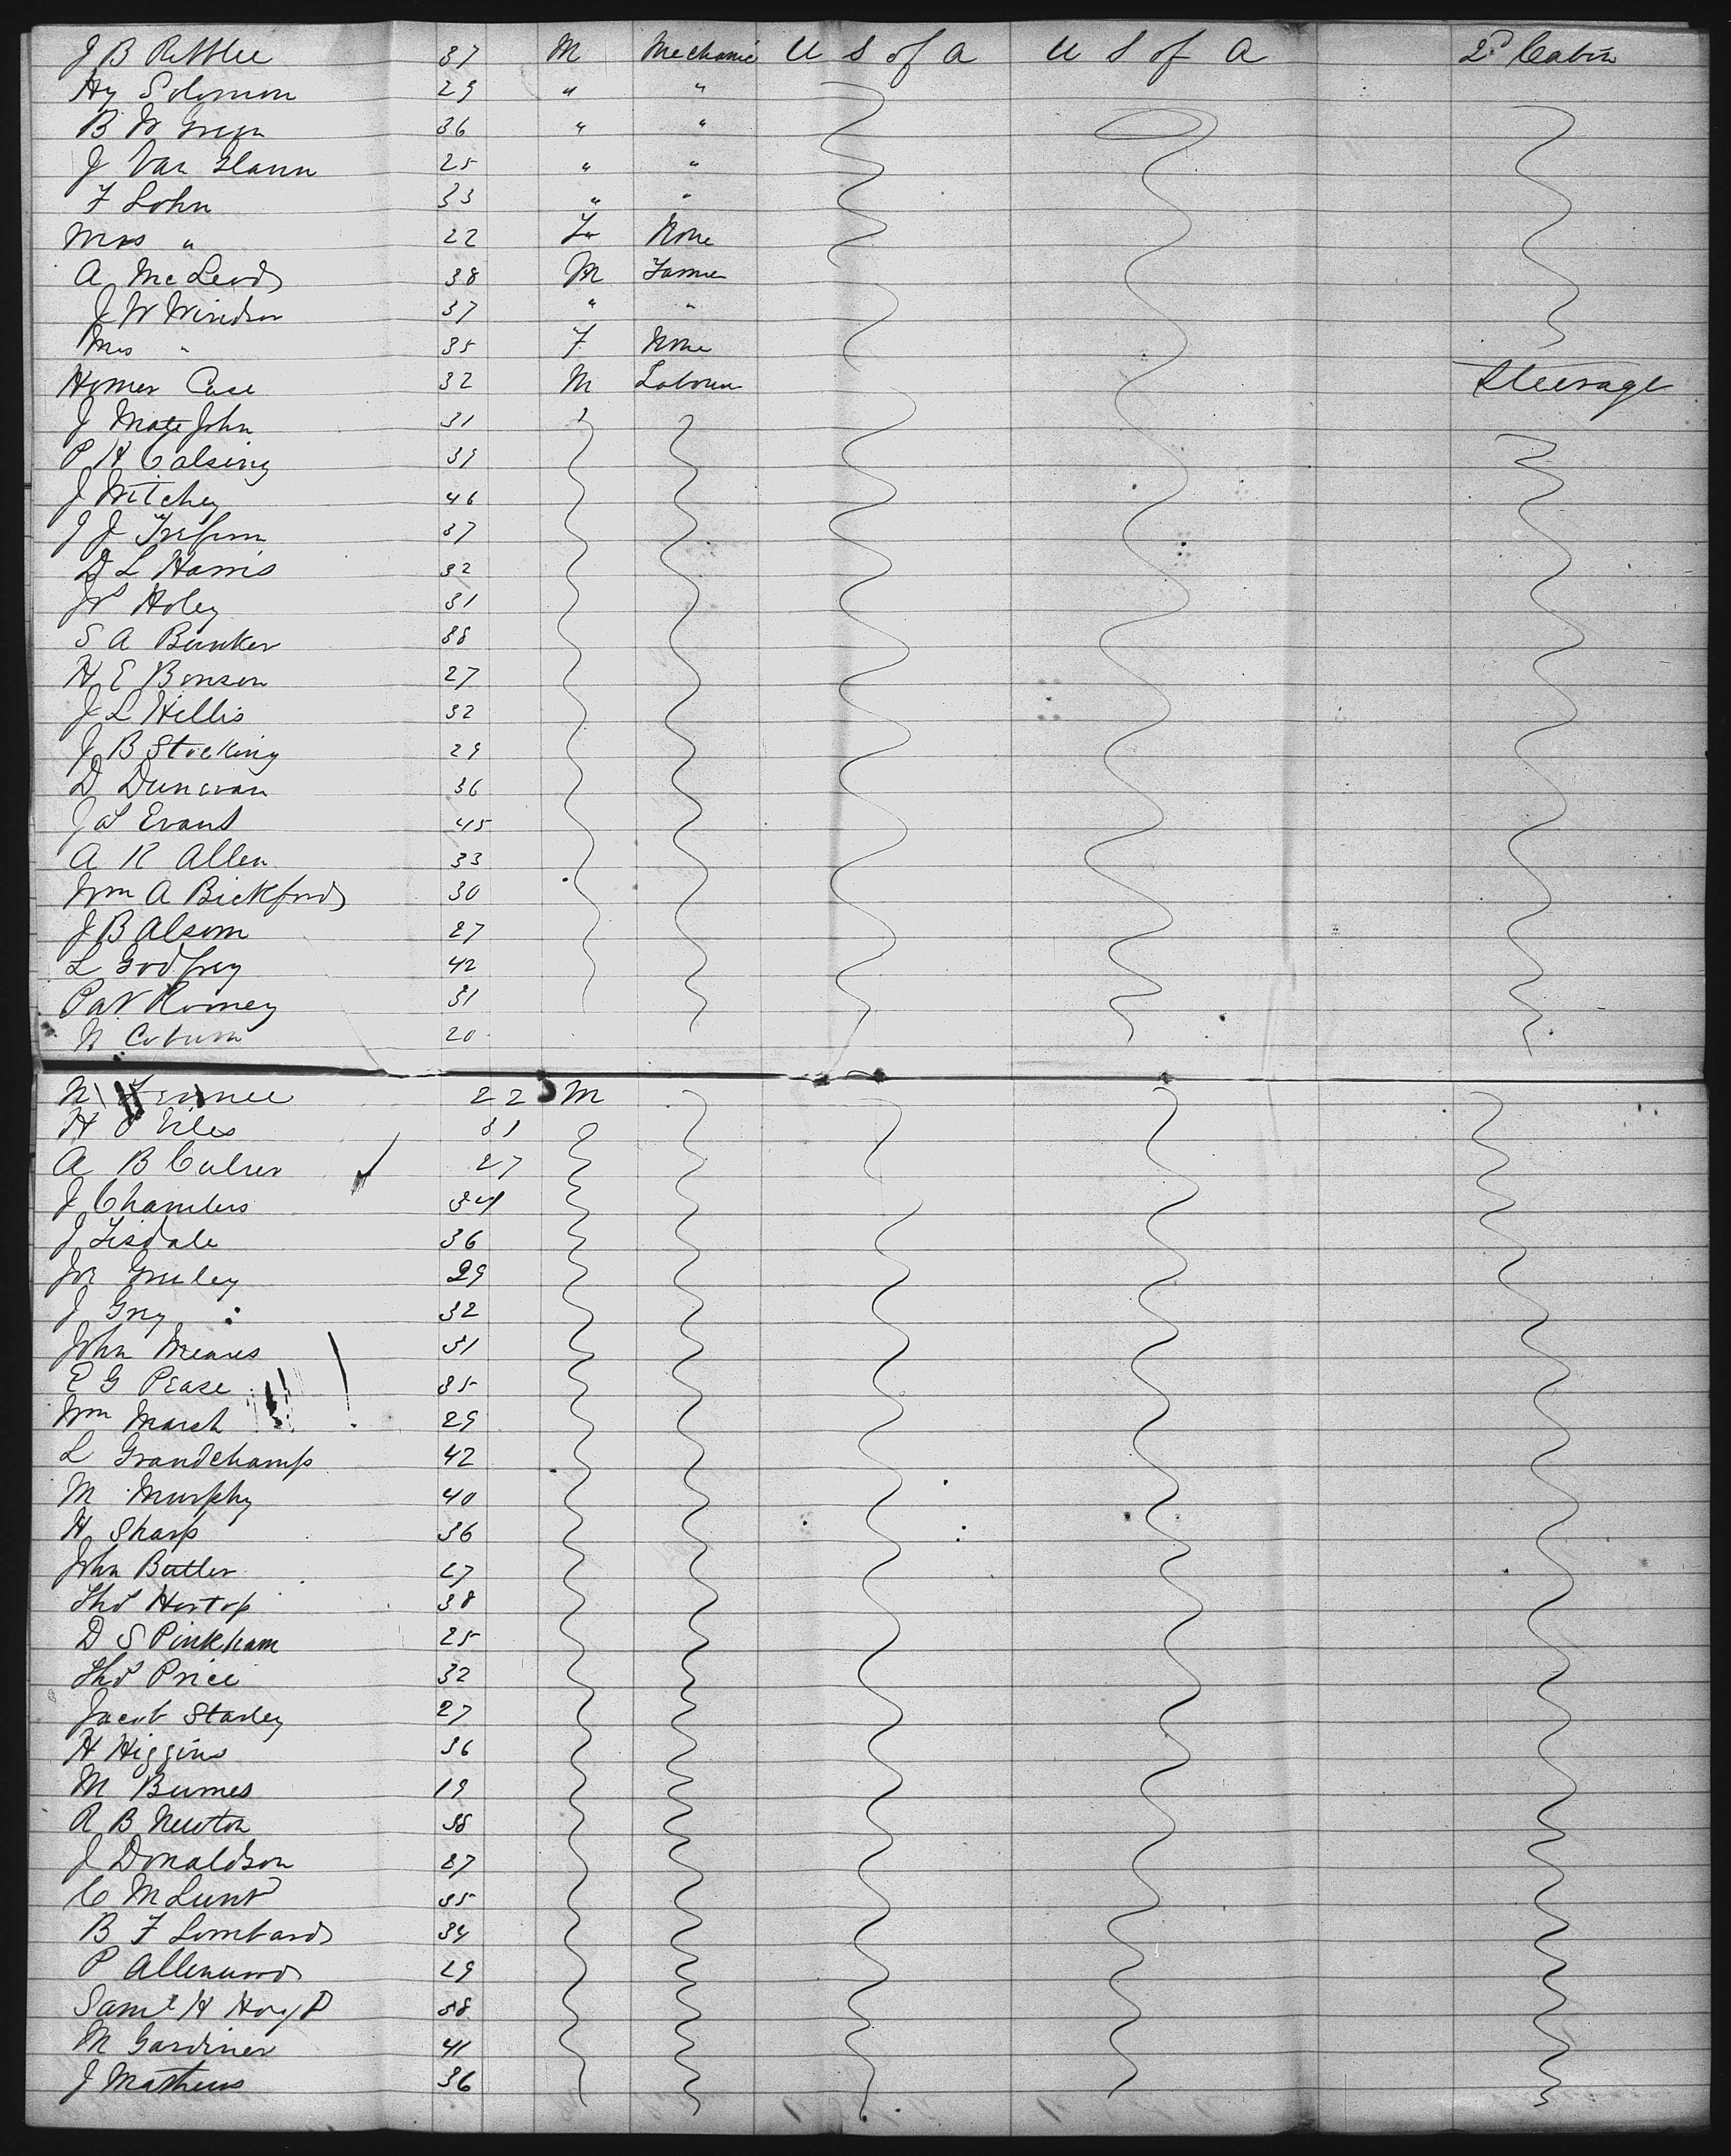 J B 37 M Mechanic U S of A U S of A 2d Cabin
Hy Solomon 29 " "
B W 36 " "
J Van Hann 25 " "
F Lohn 33 " "
Mrs " 22 F None
A McLeod 38 M Farmer
J W Windsor 37 " "
Mrs " 35 F None
Homer Case 32 M Laborer Steerage
J Mate John 31
P H Calsing 39
J Witchey 46
J J 37
D L Harris 32
Jos Holey 31
S A Bunker 38
H E Bonson 27
J L Willis 32
J B Stocking 29
D Dunavan 36
Evans 45
A R Allen 33
Wm A Bickford 30
J B Alsom 27
L Godfrey 42
Pat Romey 31
N Coburn 20
N 22 M
H O Viles 31
A B Culver 27
J Chambers 34
J Tisdale 36
Jos Gruley 29
J Grey 32
John Meares 31
E G Pease 35
Wm Marsh 29
L Grandchamp 42
M Murphy 40
H Sharp 36
John Butler 27
Thos Hartop 38
D S Pinkham 25
Thos Price 32
Jacob Starley 27
H Higgins 36
M Burnes 19
R B Newton 38
J Donaldson 27
C M Lunt 35
B F Lombard 34
P Allenwood 29
Saml H Hoyt 38
M Gardiner 41
J Mathews 36